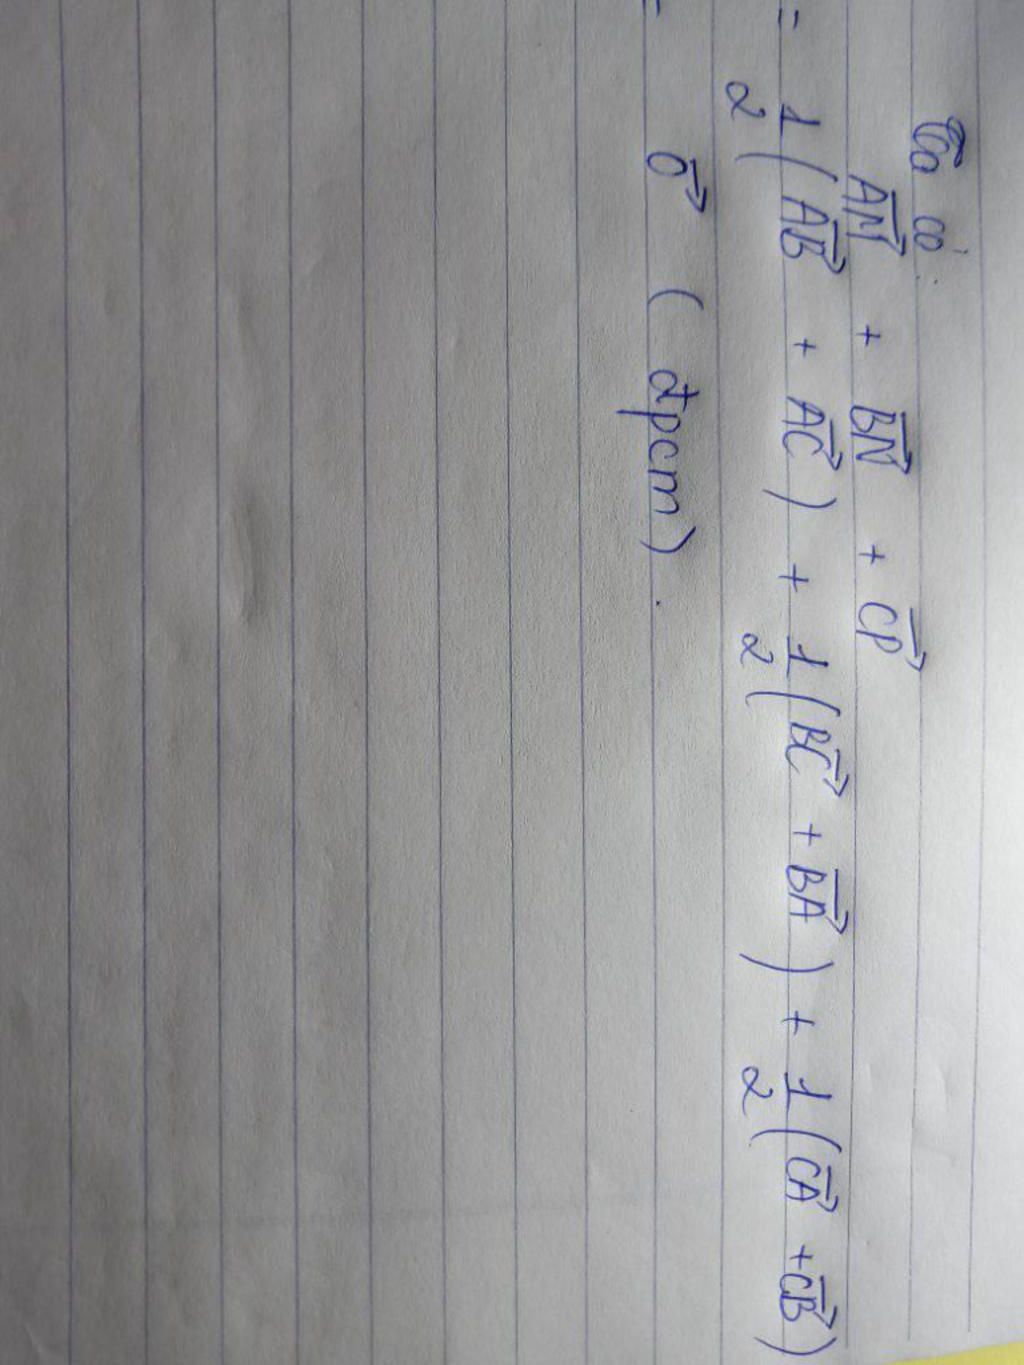 Ta có:
$\overrightarrow{AM} + \overrightarrow{BN} + \overrightarrow{CP}$
$= \frac{1}{2}(\overrightarrow{AB} + \overrightarrow{AC}) + \frac{1}{2}(\overrightarrow{BC} + \overrightarrow{BA}) + \frac{1}{2}(\overrightarrow{CA} + \overrightarrow{CB})$
$= \overrightarrow{0}$ (đpcm).